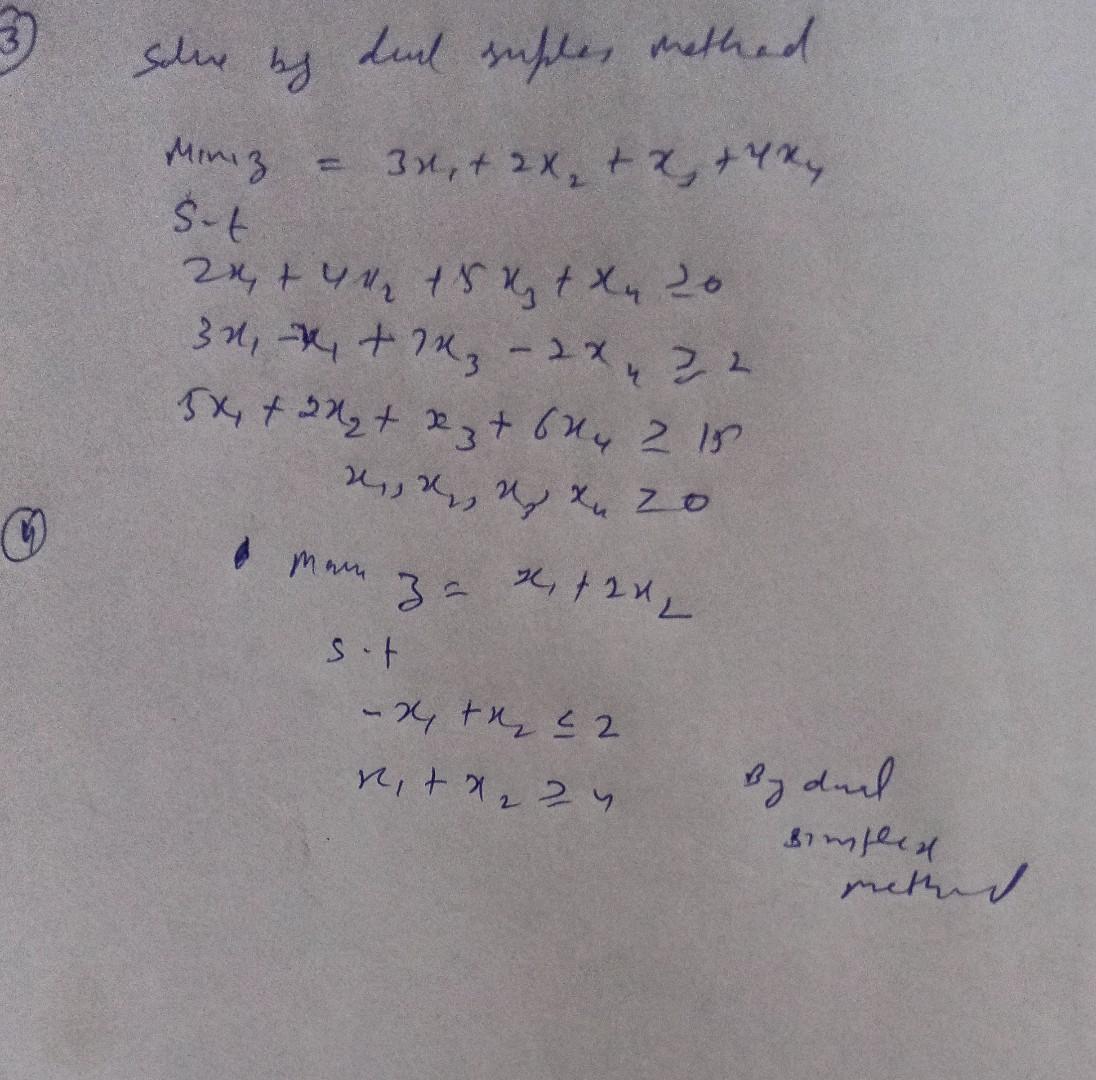 ③ Solve by dual simplex method
Mini z = 3x₁ + 2x₂ + x₃ + 4x₄
S-t
2x₁ + 4x₂ + 5x₃ + x₄ ≥ 0
3x₁ - x₁ + 7x₃ - 2x₄ ≥ 2
5x₁ + 2x₂ + x₃ + 6x₄ ≥ 15
x₁, x₂, x₃, x₄ ≥ 0
④ z = x₁ + 2x₂
s.t
-x₁ + x₂ ≤ 2
x₁ + x₂ ≥ 4
By dual
simplex
method